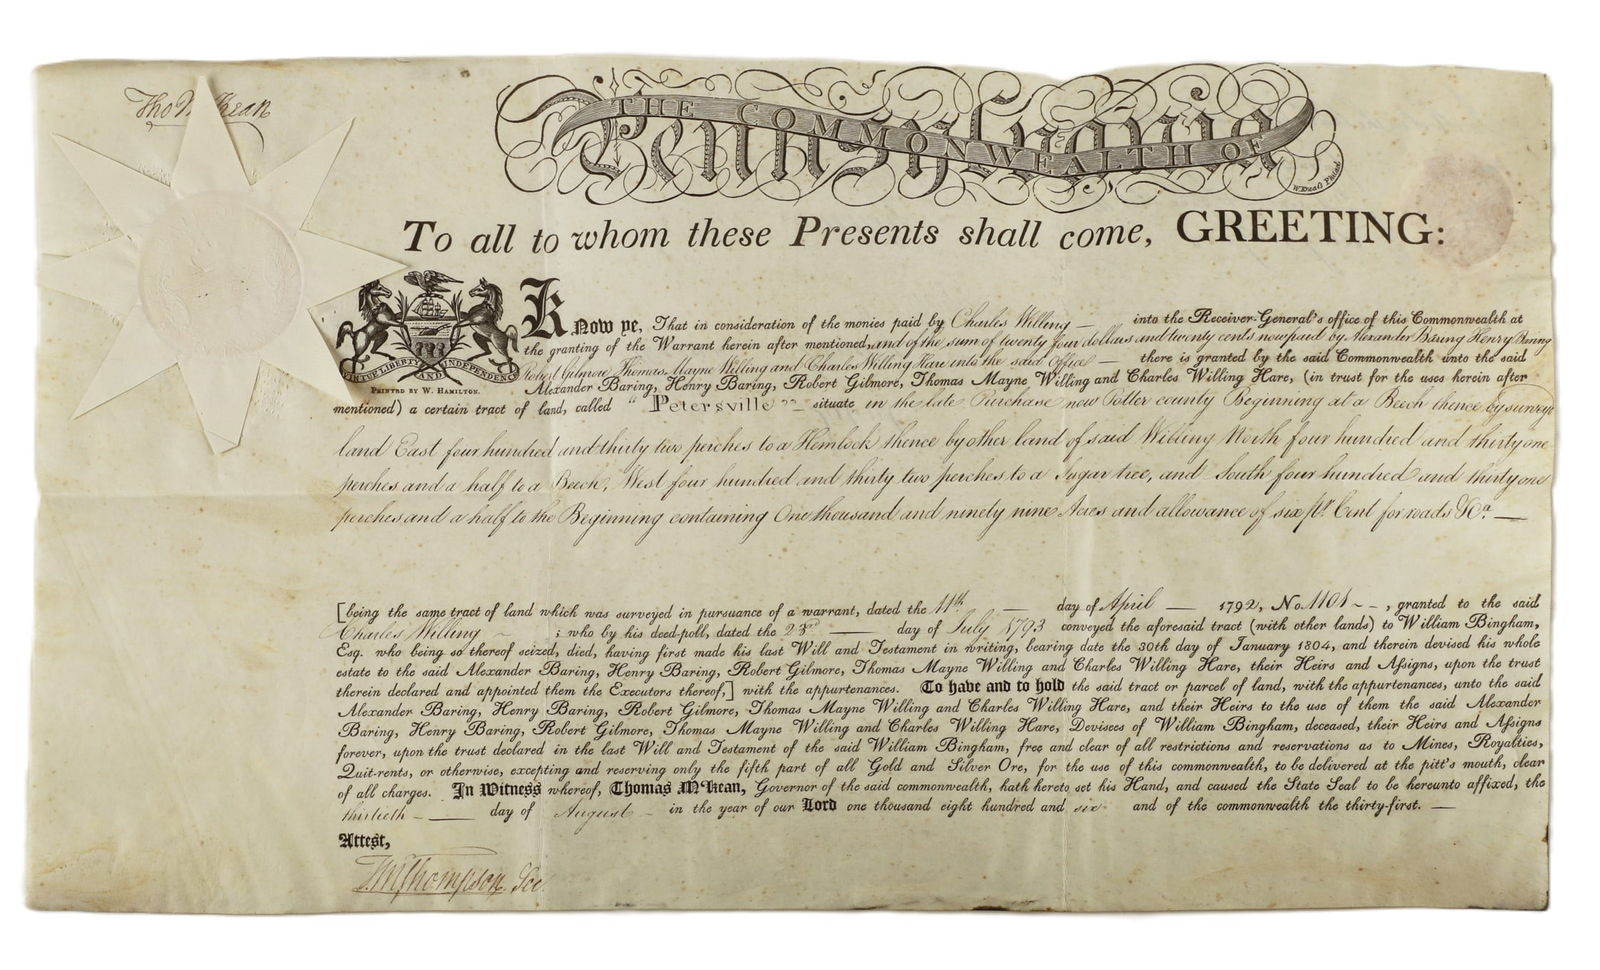 Tho M:Kean
THE COMMONWEALTH OF
Pennsylvania
To all to whom these Presents shall come, GREETING:
VIRTUE LIBERTY AND INDEPENDENCE
PRINTED BY W. HAMILTON.
Know ye, That in consideration of the monies paid by Charles Willing — into the Receiver-General's office of this Commonwealth at
the granting of the Warrant herein after mentioned, and of the sum of twenty four dollars and twenty cents now paid by Alexander Baring Henry Baring
Robert Gilmore Thomas Mayne Willing and Charles Willing Hare into the said Office — there is granted by the said Commonwealth unto the said
Alexander Baring, Henry Baring, Robert Gilmore, Thomas Mayne Willing and Charles Willing Hare, (in trust for the uses herein after
mentioned) a certain tract of land, called "Petersville" situate in the late Purchase now Potter county Beginning at a Beech thence by surveyd
land East four hundred and thirty two perches to a Hemlock thence by other land of said Willing North four hundred and thirty one
perches and a half to a Beech, West four hundred and thirty two perches to a Sugar tree, and South four hundred and thirty one
perches and a half to the Beginning containing One thousand and ninety nine Acres and allowance of six pr. Cent for roads &Ca. —
[being the same tract of land which was surveyed in pursuance of a warrant, dated the 11th — day of April — 1792, No. , granted to the said
Charles Willing ; who by his deed-poll, dated the 23d — day of July 1793 conveyed the aforesaid tract (with other lands) to William Bingham,
Esq. who being so thereof seized, died, having first made his last Will and Testament in writing, bearing date the 30th day of January 1804, and therein devised his whole
estate to the said Alexander Baring, Henry Baring, Robert Gilmore, Thomas Mayne Willing and Charles Willing Hare, their Heirs and Aſsigns, upon the trust
therein declared and appointed them the Executors thereof,] with the appurtenances. To have and to hold the said tract or parcel of land, with the appurtenances, unto the said
Alexander Baring, Henry Baring, Robert Gilmore, Thomas Mayne Willing and Charles Willing Hare, and their Heirs to the use of them the said Alexander
Baring, Henry Baring, Robert Gilmore, Thomas Mayne Willing and Charles Willing Hare, Devisees of William Bingham, deceased, their Heirs and Aſsigns
forever, upon the trust declared in the last Will and Testament of the said William Bingham, free and clear of all restrictions and reservations as to Mines, Royalties,
Quit-rents, or otherwise, excepting and reserving only the fifth part of all Gold and Silver Ore, for the use of this commonwealth, to be delivered at the pitt's mouth, clear
of all charges. In Witness whereof, Thomas M'Kean, Governor of the said commonwealth, hath hereto set his Hand, and caused the State Seal to be hereunto affixed, the
thirtieth — day of August — in the year of our Lord one thousand eight hundred and six and of the commonwealth the thirty-first. —
Attest,
T.M. Thompson, Sec.